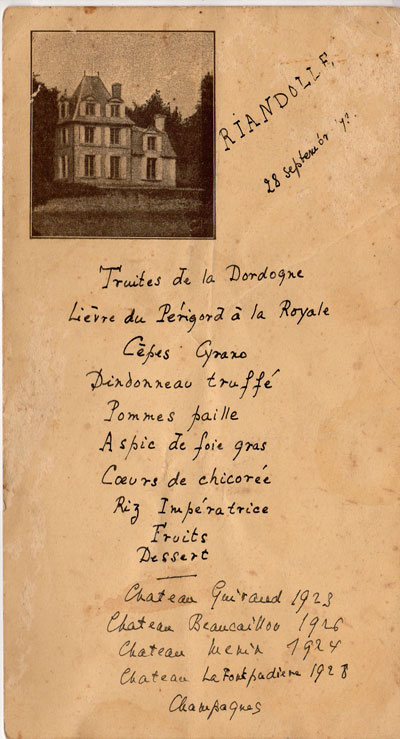 RIANDOLLE,
28 septembr
Truites de la Dordogne
Lièvre du Périgord à la Royale
Cêpes Cyrano
Dindonneau truffé
Pommes paille
Aspic de foie gras
Cœurs de chicorée
Riz Impératrice
Fruits
Dessert
Chateau Guiraud 1923
Chateau Beaucaillou 1926
Chateau 1924
Chateau La Fontpadiere 1928
Champagnes